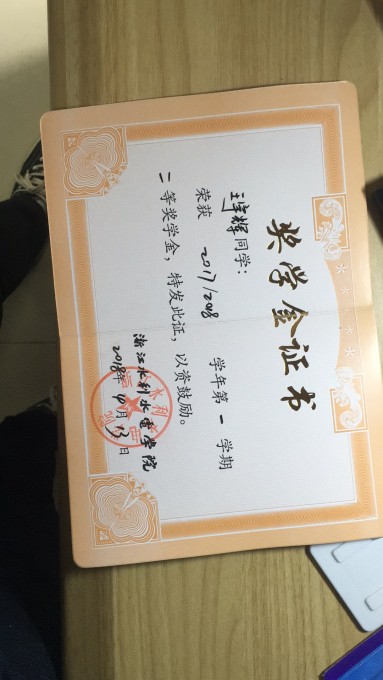 奖学金证书
王宇辉同学：
荣获 2017/2018 学年第一学期
二等奖学金，特发此证，以资鼓励。
浙江水利水电学院
2018年4月13日